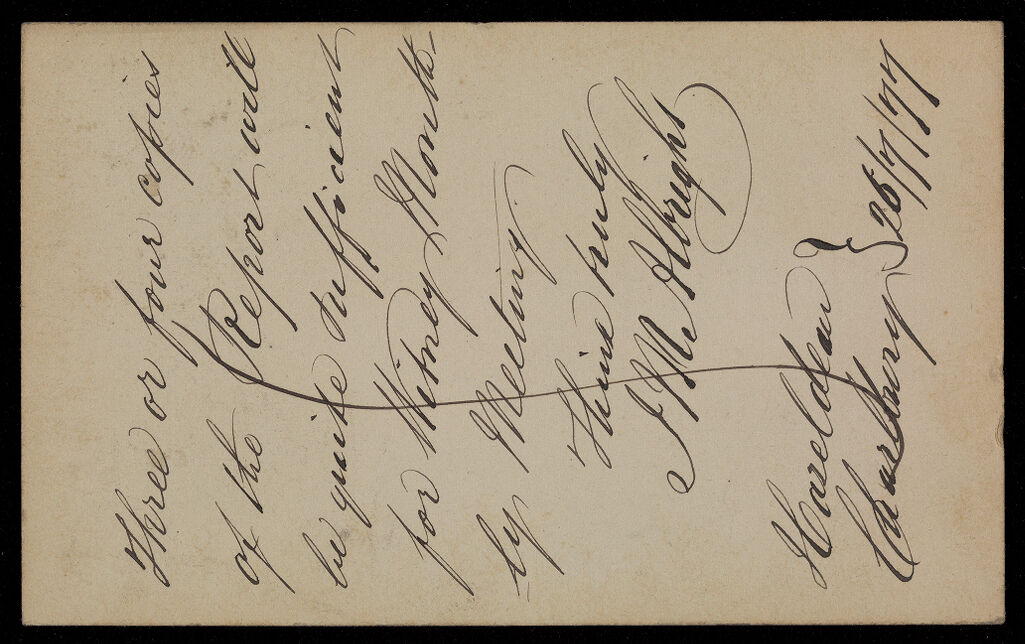 Three or four copies
of the Report will
be quite sufficient
for Witney Month-
ly Meeting
Thine truly
J Mc Albright
Hazeldean
Charlbury } 26/7/77